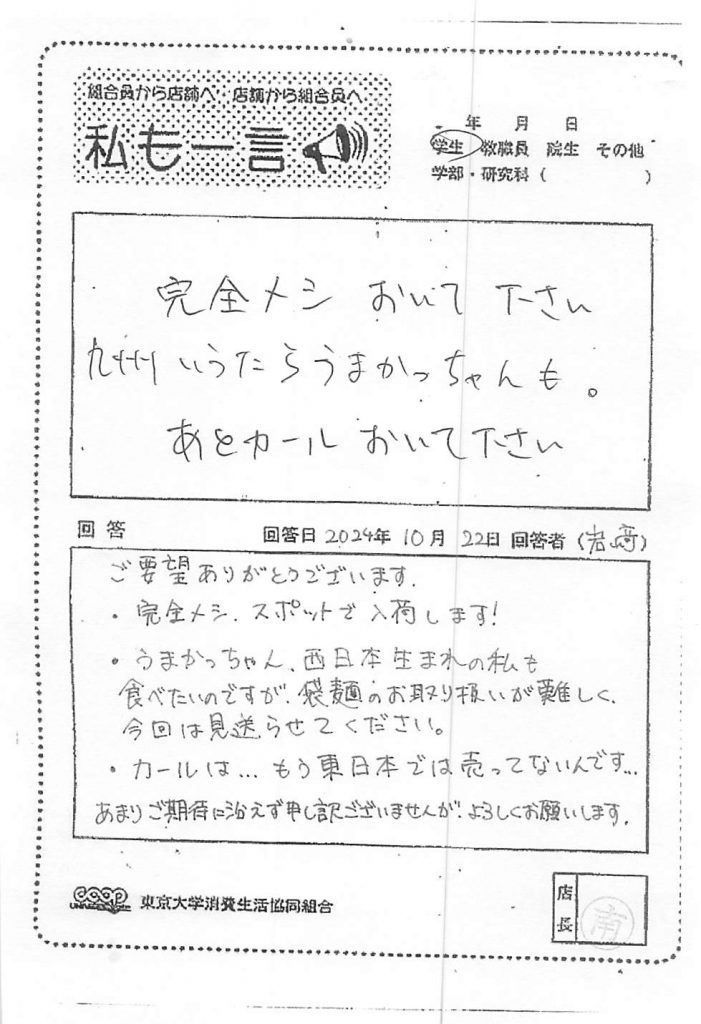 組合員から店舗へ 店舗から組合員へ
私も一言
年 月 日
学生 教職員 院生 その他
学部・研究科( )
完全メシ おいて 下さい
九州いうたらうまかっちゃんも。
あとカール おいて下さい
回答 回答日 2024年 10月 22日 回答者(岩﨑)
ご要望ありがとうございます.
・完全メシ、スポットで入荷します!
・うまかっちゃん、西日本生まれの私も
食べたいのですが、袋麺のお取り扱いが難しく、
今回は見送らせてください。
・カールは…もう東日本では売ってないんです…
あまりご期待に沿えず申し訳ございませんが、よろしくお願いします.
coop
UNIVERSITY
東京大学消費生活協同組合
店長
南